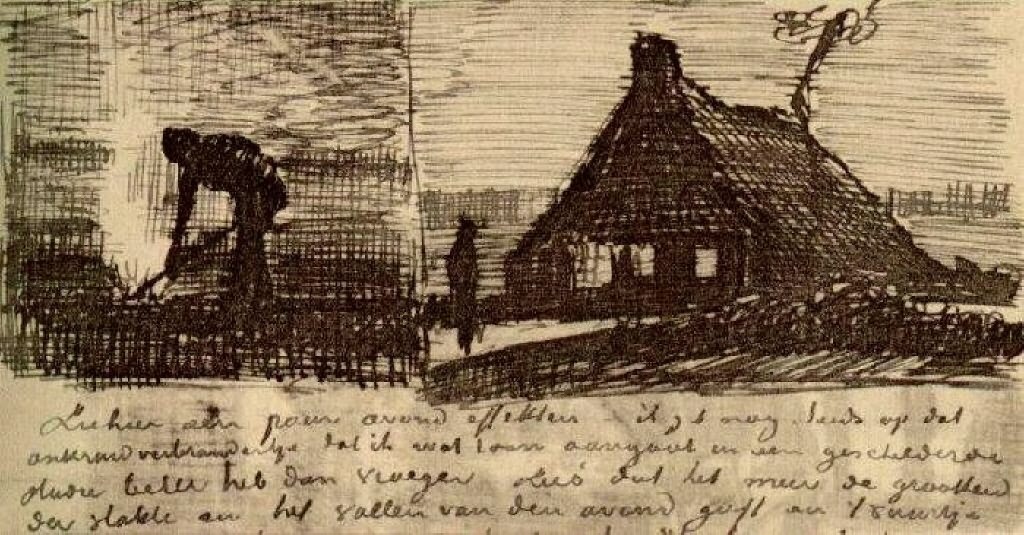 Ziehier een paar avond effekten – ik zit nog steeds op dat
onkruidverbrandertje dat ik wat toon aangaat in een geschilderde
studie beter heb dan vroeger Zoo dat het meer de grootheid
der vlakte en het vallen van den avond geeft en 't vuurtje